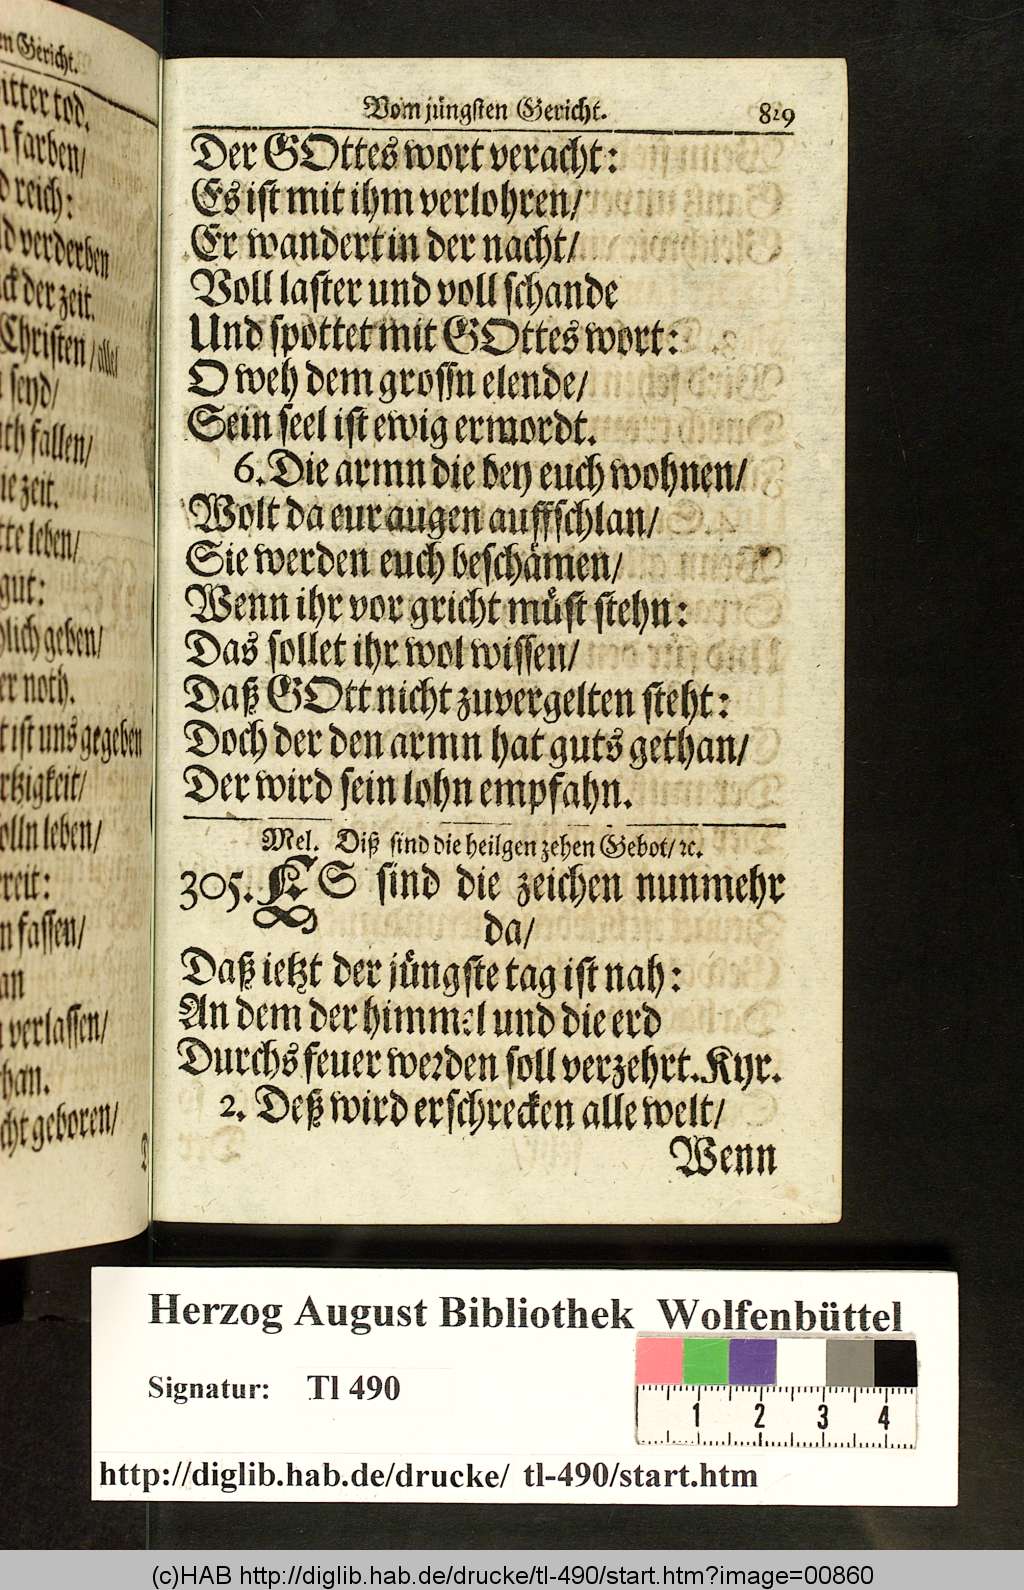 en Gericht.
bitter tod.
n farben/
d reich:
d verderben
ck der zeit.
Christen/ alle/
seyd/
fallen/
ie zeit.
tte leben/
gut:
lich geben/
er noth.
t ist uns gegeben
rtzigkeit/
olln leben/
reit:
n fassen/
an
verlassen/
han.
cht geboren/
Vom jüngsten Gericht. 829
Der GOttes wort veracht:
Es ist mit ihm verlohren/
Er wandert in der nacht/
Voll laster und voll schande
Und spottet mit GOttes wort:
O weh dem grossn elende/
Sein seel ist ewig ermordt.
6. Die armn die bey euch wohnen/
Wolt da eur augen auffschlan/
Sie werden euch beschämen/
Wenn ihr vor gricht müst stehn:
Das sollet ihr wol wissen/
Daß GOtt nicht zuvergelten steht:
Doch der den armn hat guts gethan/
Der wird sein lohn empfahn.
Mel. Diß sind die heilgen zehen Gebot/ ꝛc.
305. ES sind die zeichen nunmehr
da/
Daß ietzt der jüngste tag ist nah:
An dem der himmel und die erd
Durchs feuer werden soll verzehrt. Kyr.
2. Deß wird erschrecken alle welt/
Wenn
Herzog August Bibliothek Wolfenbüttel
Signatur: Tl 490
1 2 3 4
http://diglib.hab.de/drucke/ tl-490/start.htm
(c)HAB http://diglib.hab.de/drucke/tl-490/start.htm?image=00860